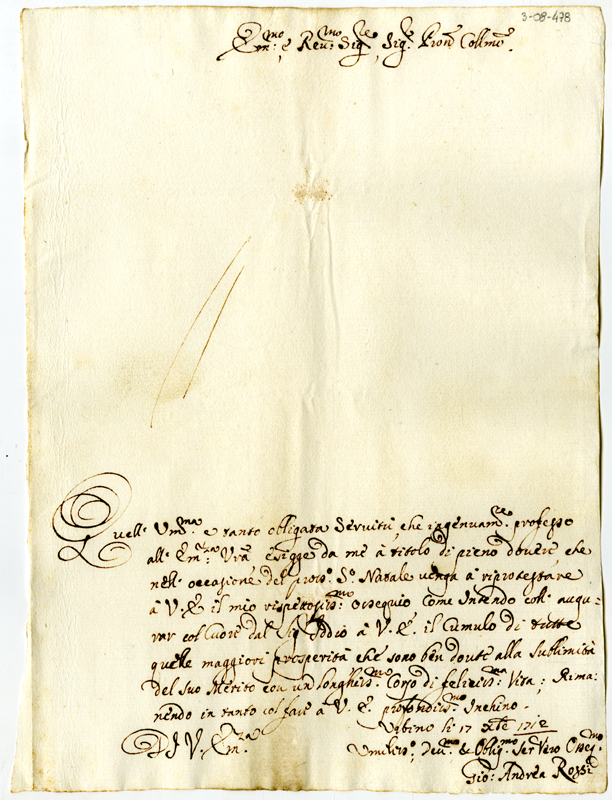 3-08-478
Em:mo e Reu:mo Sig:re Sig:re Pron Collmo.
Quell' Um:ma e tanto obligata Servitù, che ingenuam:te professo
all' Em:za Vrã esigge da me à titolo di pieno dovere, che
nell' occasione del pross:o S:o Natale venga à riprotestare
à V. E. il mio rispettosiss:mo Ossequio, come Intendo coll' augu-
rar col Cuore dal Sig Iddio à V. E. il Cumulo di tutte
quelle maggiori prosperità che sono ben doute alla Sublimità
del Suo Merito con un longhiss:mo Corso di feliciss:ma Vita; Rima-
nendo in tanto col fare à V. E. profondiss:mo Inchino.
Urbino li 17 Xbre 1712
Di V. Em:za
Umiliss:o, Deu:mo & Oblig:mo Ser Vero Osseq:mo
Gio: Andrea Rossi